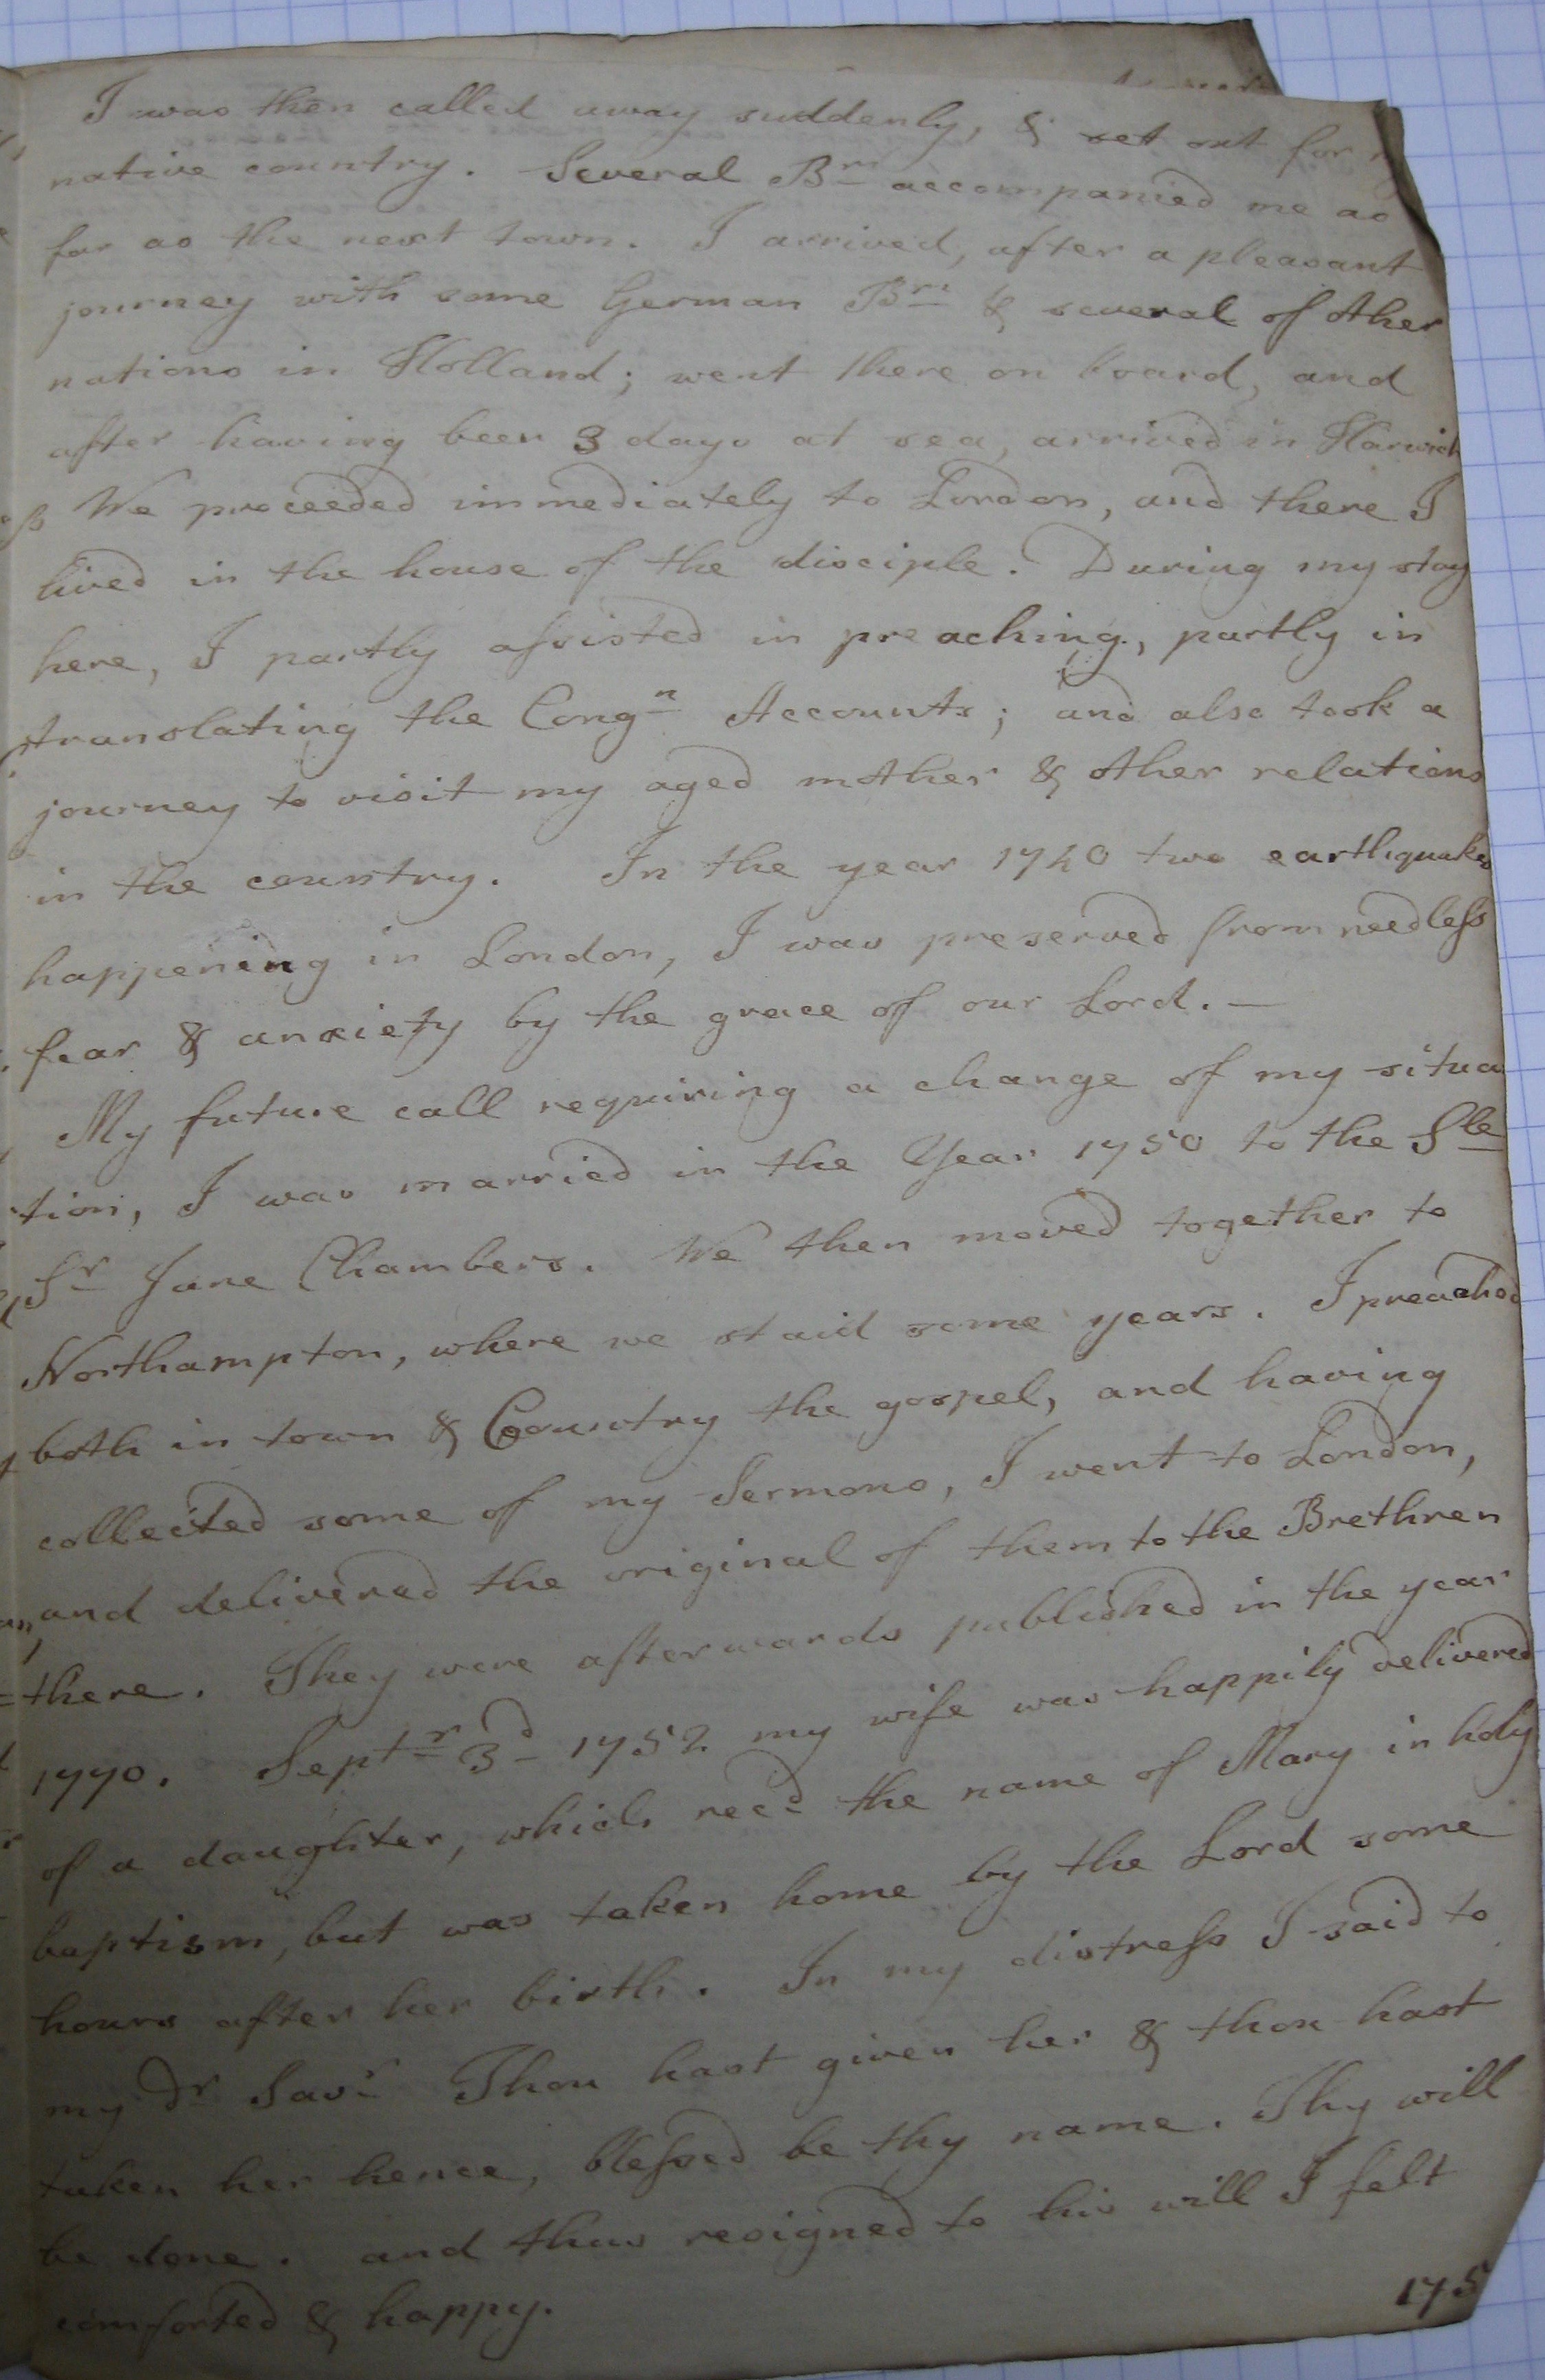 I was then called away suddenly, & set out for m
native country. Several Brn accompanied me as
far as the next town. I arrived, after a pleasant
journey with some German Brn & several of other
nations in Holland; went there on board, and
after having been 3 days at sea, arrived in Harwich
We proceeded immediately to London, and there I
lived in the house of the disciple. During my stay
here, I partly assisted in preaching, partly in
translating the Congn Accounts; and also took a
journey to visit my aged mother & other relations
in the country. In the year 1740 two earthquakes
happening in London, I was preserved from needless
fear & anxiety by the grace of our Lord. —
My future call requiring a change of my situa
tion, I was married in the Year 1750 to the Sle
Sr Jane Chambers. We then moved together to
Northampton, where we staid some years. I preached
both in town & Country the gospel, and having
collected some of my Sermons, I went to London,
and delivered the original of them to the Brethren
there. They were afterwards published in the year
1770. Septr 3d 1752 my wife was happily delivered
of a daughter, which recd the name of Mary in holy
baptism, but was taken home by the Lord some
hours after her birth. In my distress I said to
my Dr Savr Thou hast given her & thou hast
taken her hence, blessed be thy name. Thy will
be done. and thus resigned to his will I felt
comforted & happy.
175